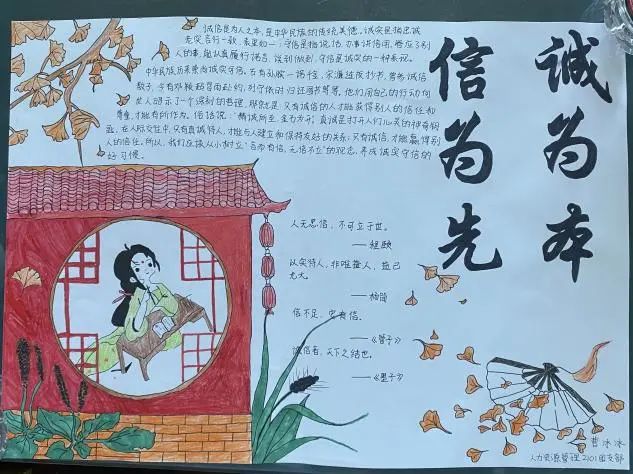 诚为本
信为先
诚信是为人之本,是中华民族的传统美德。诚实是指忠诚
老实言行一致,表里如一;守信是指说话、办事讲信用,答应了别
人的事,能认真履行诺言,说到做到,守信是诚实的一种表现。
中华民族历来崇尚诚实守信。古有
宋濂连夜抄书,曾参诚信
教子,
他们用自己的行动向
世人昭示了一个深刻的哲理,那就是:只有诚信的人才能获得别人的信任和
尊重,才能有所作为。俗话说:"精诚所至,金石为开,真诚是打开人们心灵的神奇钥
匙,在人际交往中,只有真诚待人,才能与人建立和保持友好的关系;只有诚信,才能赢得别
人的信任。所以,我们应该从小树立"言而有信,无信不立"的观念,养成诚实守信的
好习惯。
人无忠信,不可立于世。
——程颐
以实待人,非唯益人,益己
尤大。
——杨简
信不足,安有信。
——《管子》
诚信者,天下之结也。
——《墨子》
曹冰冰
人力资源管理2101团支部